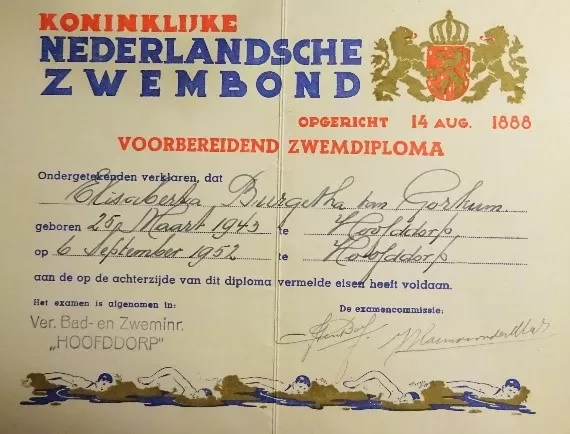 KONINKLIJKE
NEDERLANDSCHE
ZWEMBOND
OPGERICHT 14 AUG. 1888
VOORBEREIDEND ZWEMDIPLOMA
Ondergetekenden verklaren, dat
Elisabertha Burgetha van Gorkum.
geboren 25 Maart 1943 te Hoofddorp
op 6 September 1952 te Hoofddorp
aan de op de achterzijde van dit diploma vermelde eisen heeft voldaan.
Het examen is afgenomen in:
De examencommissie:
Ver. Bad- en Zweminr.
„HOOFDDORP"